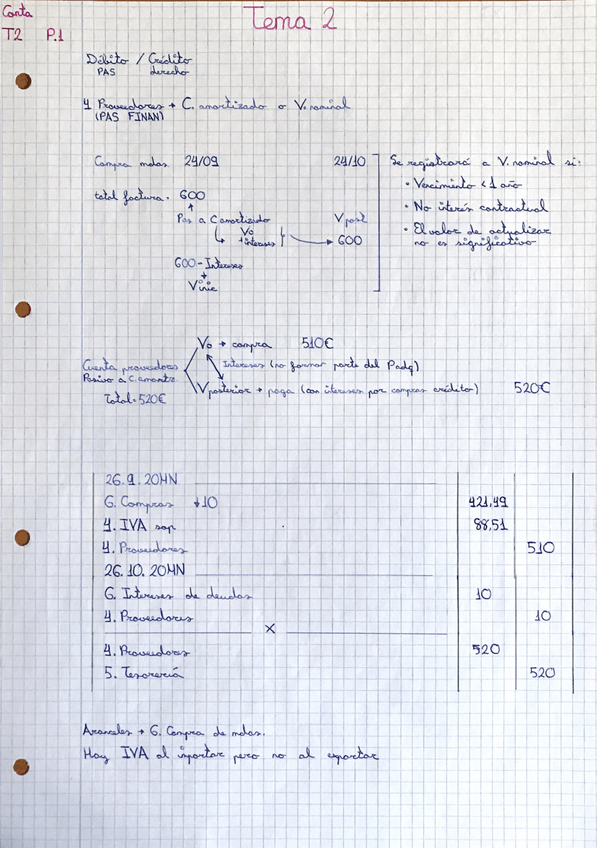 Conta
Tema 2
T2 P.1
Débito / Crédito
PAS derecho
4 Proveedores → C. amortizado o V. nominal
(PAS FINAN)
Compra mdas. 24/09 24/10 Se registrará a V. nominal si:
• Vencimiento < 1 año
total factura = 600
• No interés contractual
Pas a C amortizado V post
↳ Vo + intereses → 600
• El valor de actualizar no es significativo
600 - Intereses
↓
V inic
Vo → compra 510€
Cuenta proveedores Intereses (no formar parte del Padq)
Pasivo a C. amortz.
V posterior → paga (con intereses por compras crédito) 520€
Total = 520€
26.9.20HN
6. Compras ↓10 421,49
4. IVA sop 88,51
4. Proveedores 510
26.10.20HN
6. Intereses de deudas 10
4. Proveedores 10
X
4. Proveedores 520
5. Tesorería 520
Aranceles → 6. Compra de mdas.
Hay IVA al importar pero no al exportar